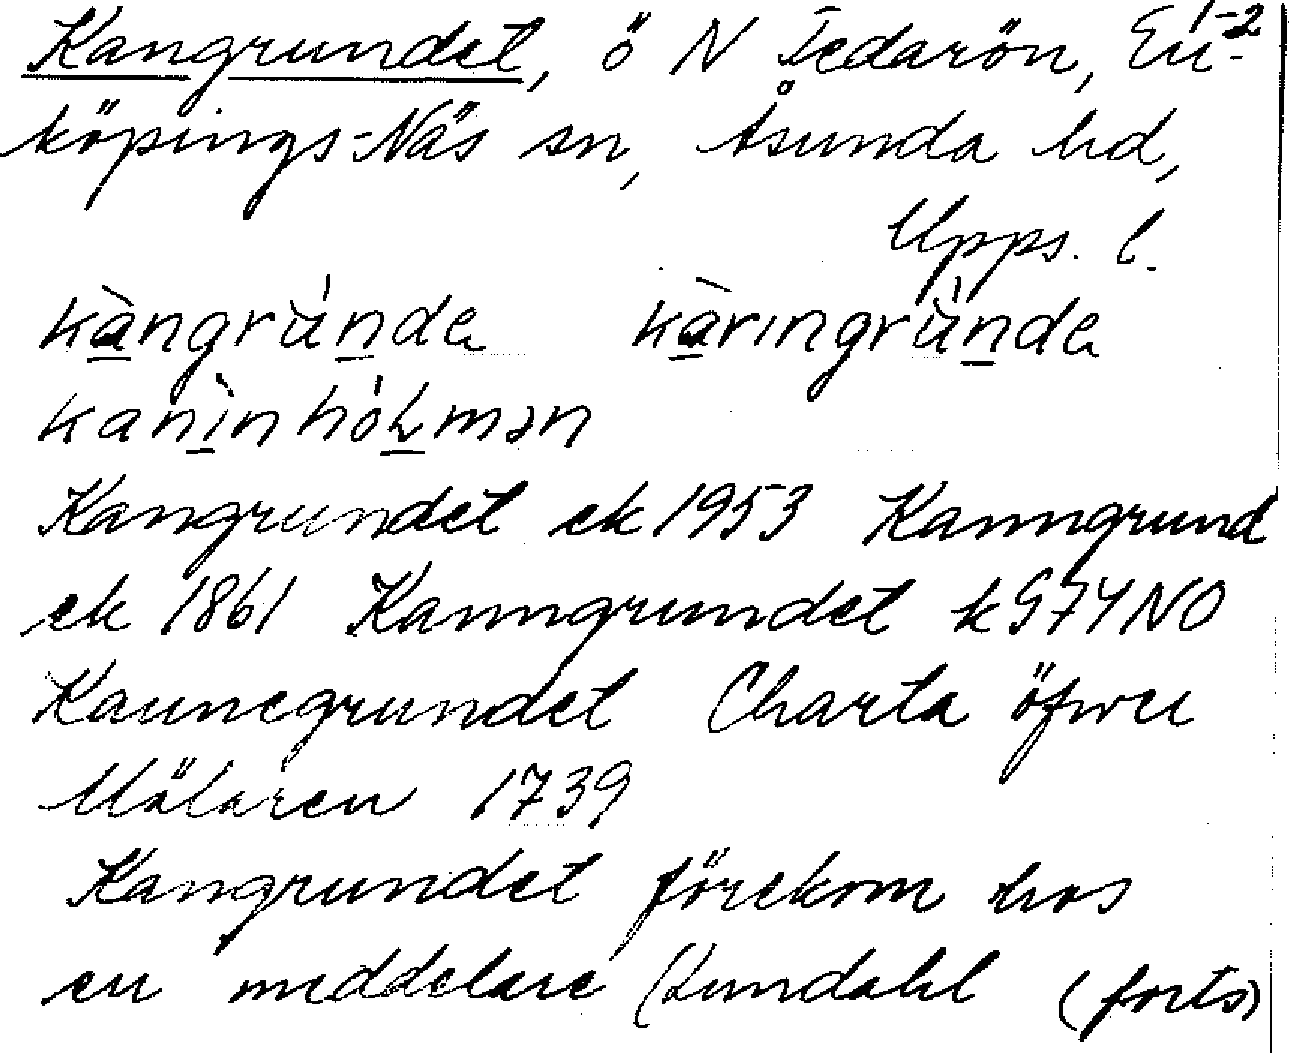 Kangrundet, ö N Tedarön, En- 1-2
köpings-Näs sn, Åsunda hd,
Upps. l.
kàngrúnda kàringrùnda
kanìnhólmən
Kangrundet ek 1953 Kanngrund
ek 1861 Kanngrundet k G74NO
Kaunegrundet Charta öfwer
Mälaren 1739
Kangrundet förekom hos
en meddelare (Lundahl (forts)